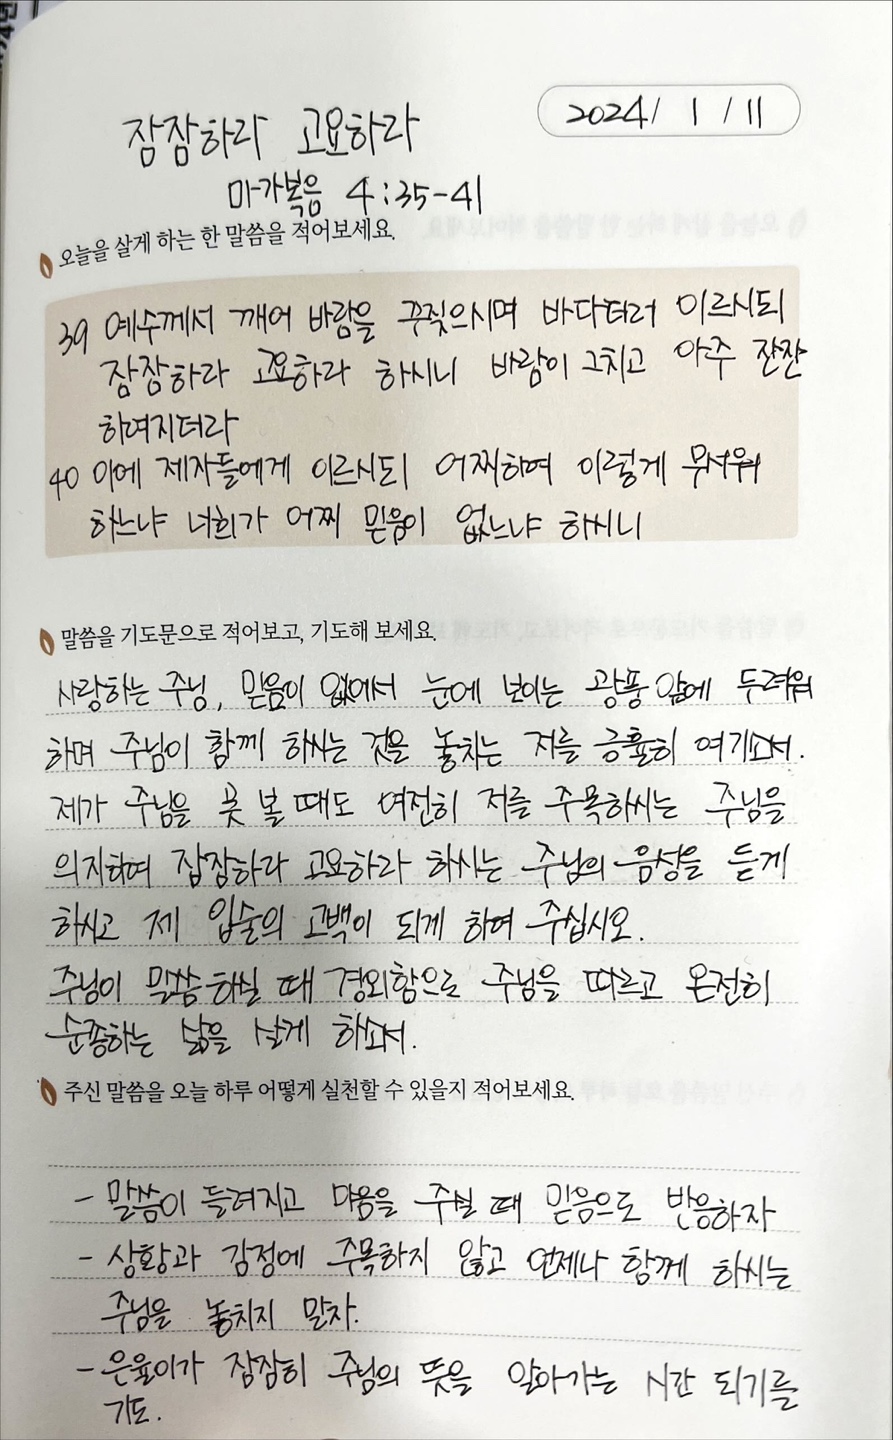 2024 / 1 / 11
잠잠하라 고요하라
마가복음 4:35-41
오늘을 살게 하는 한 말씀을 적어보세요.
39 예수께서 깨어 바람을 꾸짖으시며 바다더러 이르시되
잠잠하라 고요하라 하시니 바람이 그치고 아주 잔잔
하여지더라
40 이에 제자들에게 이르시되 어찌하여 이렇게 무서워
하느냐 너희가 어찌 믿음이 없느냐 하시니
말씀을 기도문으로 적어보고, 기도해 보세요.
사랑하는 주님, 믿음이 없어서 눈에 보이는 광풍 앞에 두려워
하며 주님이 함께 하시는 것을 놓치는 저를 긍휼히 여기소서.
제가 주님을 못 볼 때도 여전히 저를 주목하시는 주님을
의지하여 잠잠하라 고요하라 하시는 주님의 음성을 듣게
하시고 제 입술의 고백이 되게 하여 주십시오.
주님이 말씀하실 때 경외함으로 주님을 따르고 온전히
순종하는 삶을 살게 하소서.
주신 말씀을 오늘 하루 어떻게 실천할 수 있을지 적어보세요.
- 말씀이 들려지고 마음을 주실 때 믿음으로 반응하자
- 상황과 감정에 주목하지 않고 언제나 함께 하시는
주님을 놓치지 말자.
- 은율이가 잠잠히 주님의 뜻을 알아가는 시간 되기를
기도.